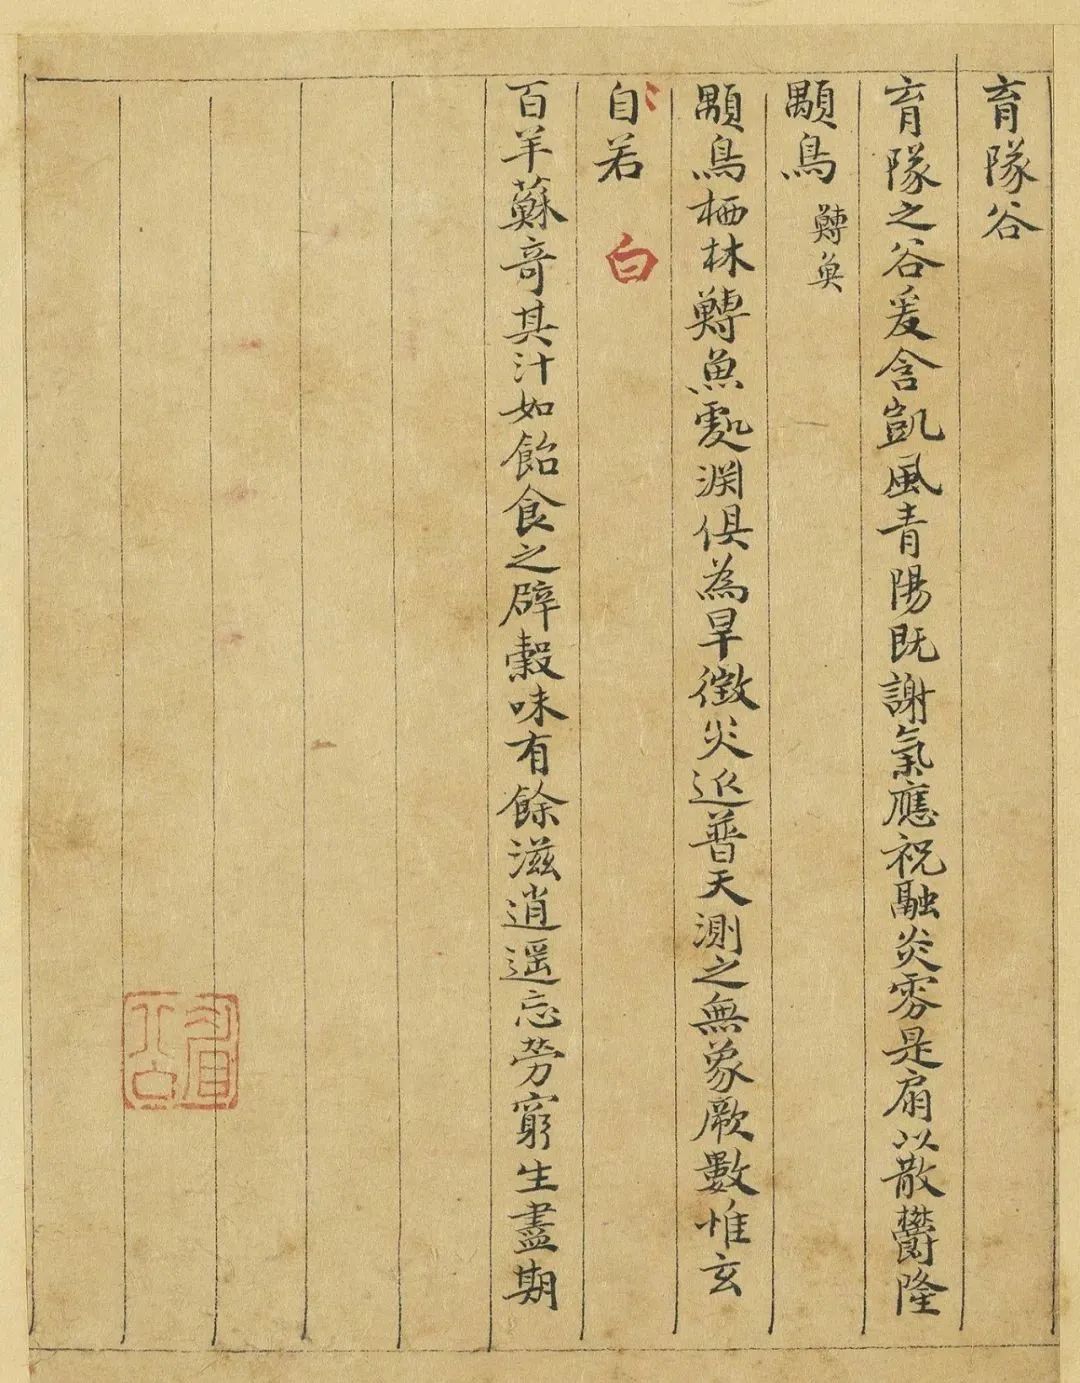 育隊谷
育隊之谷爰含凱風青陽既謝氣應祝融炎雰是扇以散欝隆
顒鳥 鱄魚
顒鳥栖林鱄魚處渊俱為旱徵災延普天測之無象厥數惟玄
自若 白
百羊蘓奇其汁如飴食之辟穀味有餘滋逍遥忘劳窮生盡期